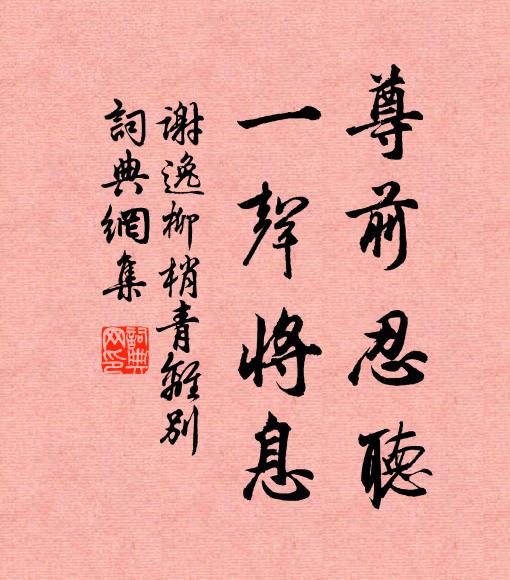 尊前忍聽
一聲將息
谢逸柳梢青離別
詞典網集
詞典網印